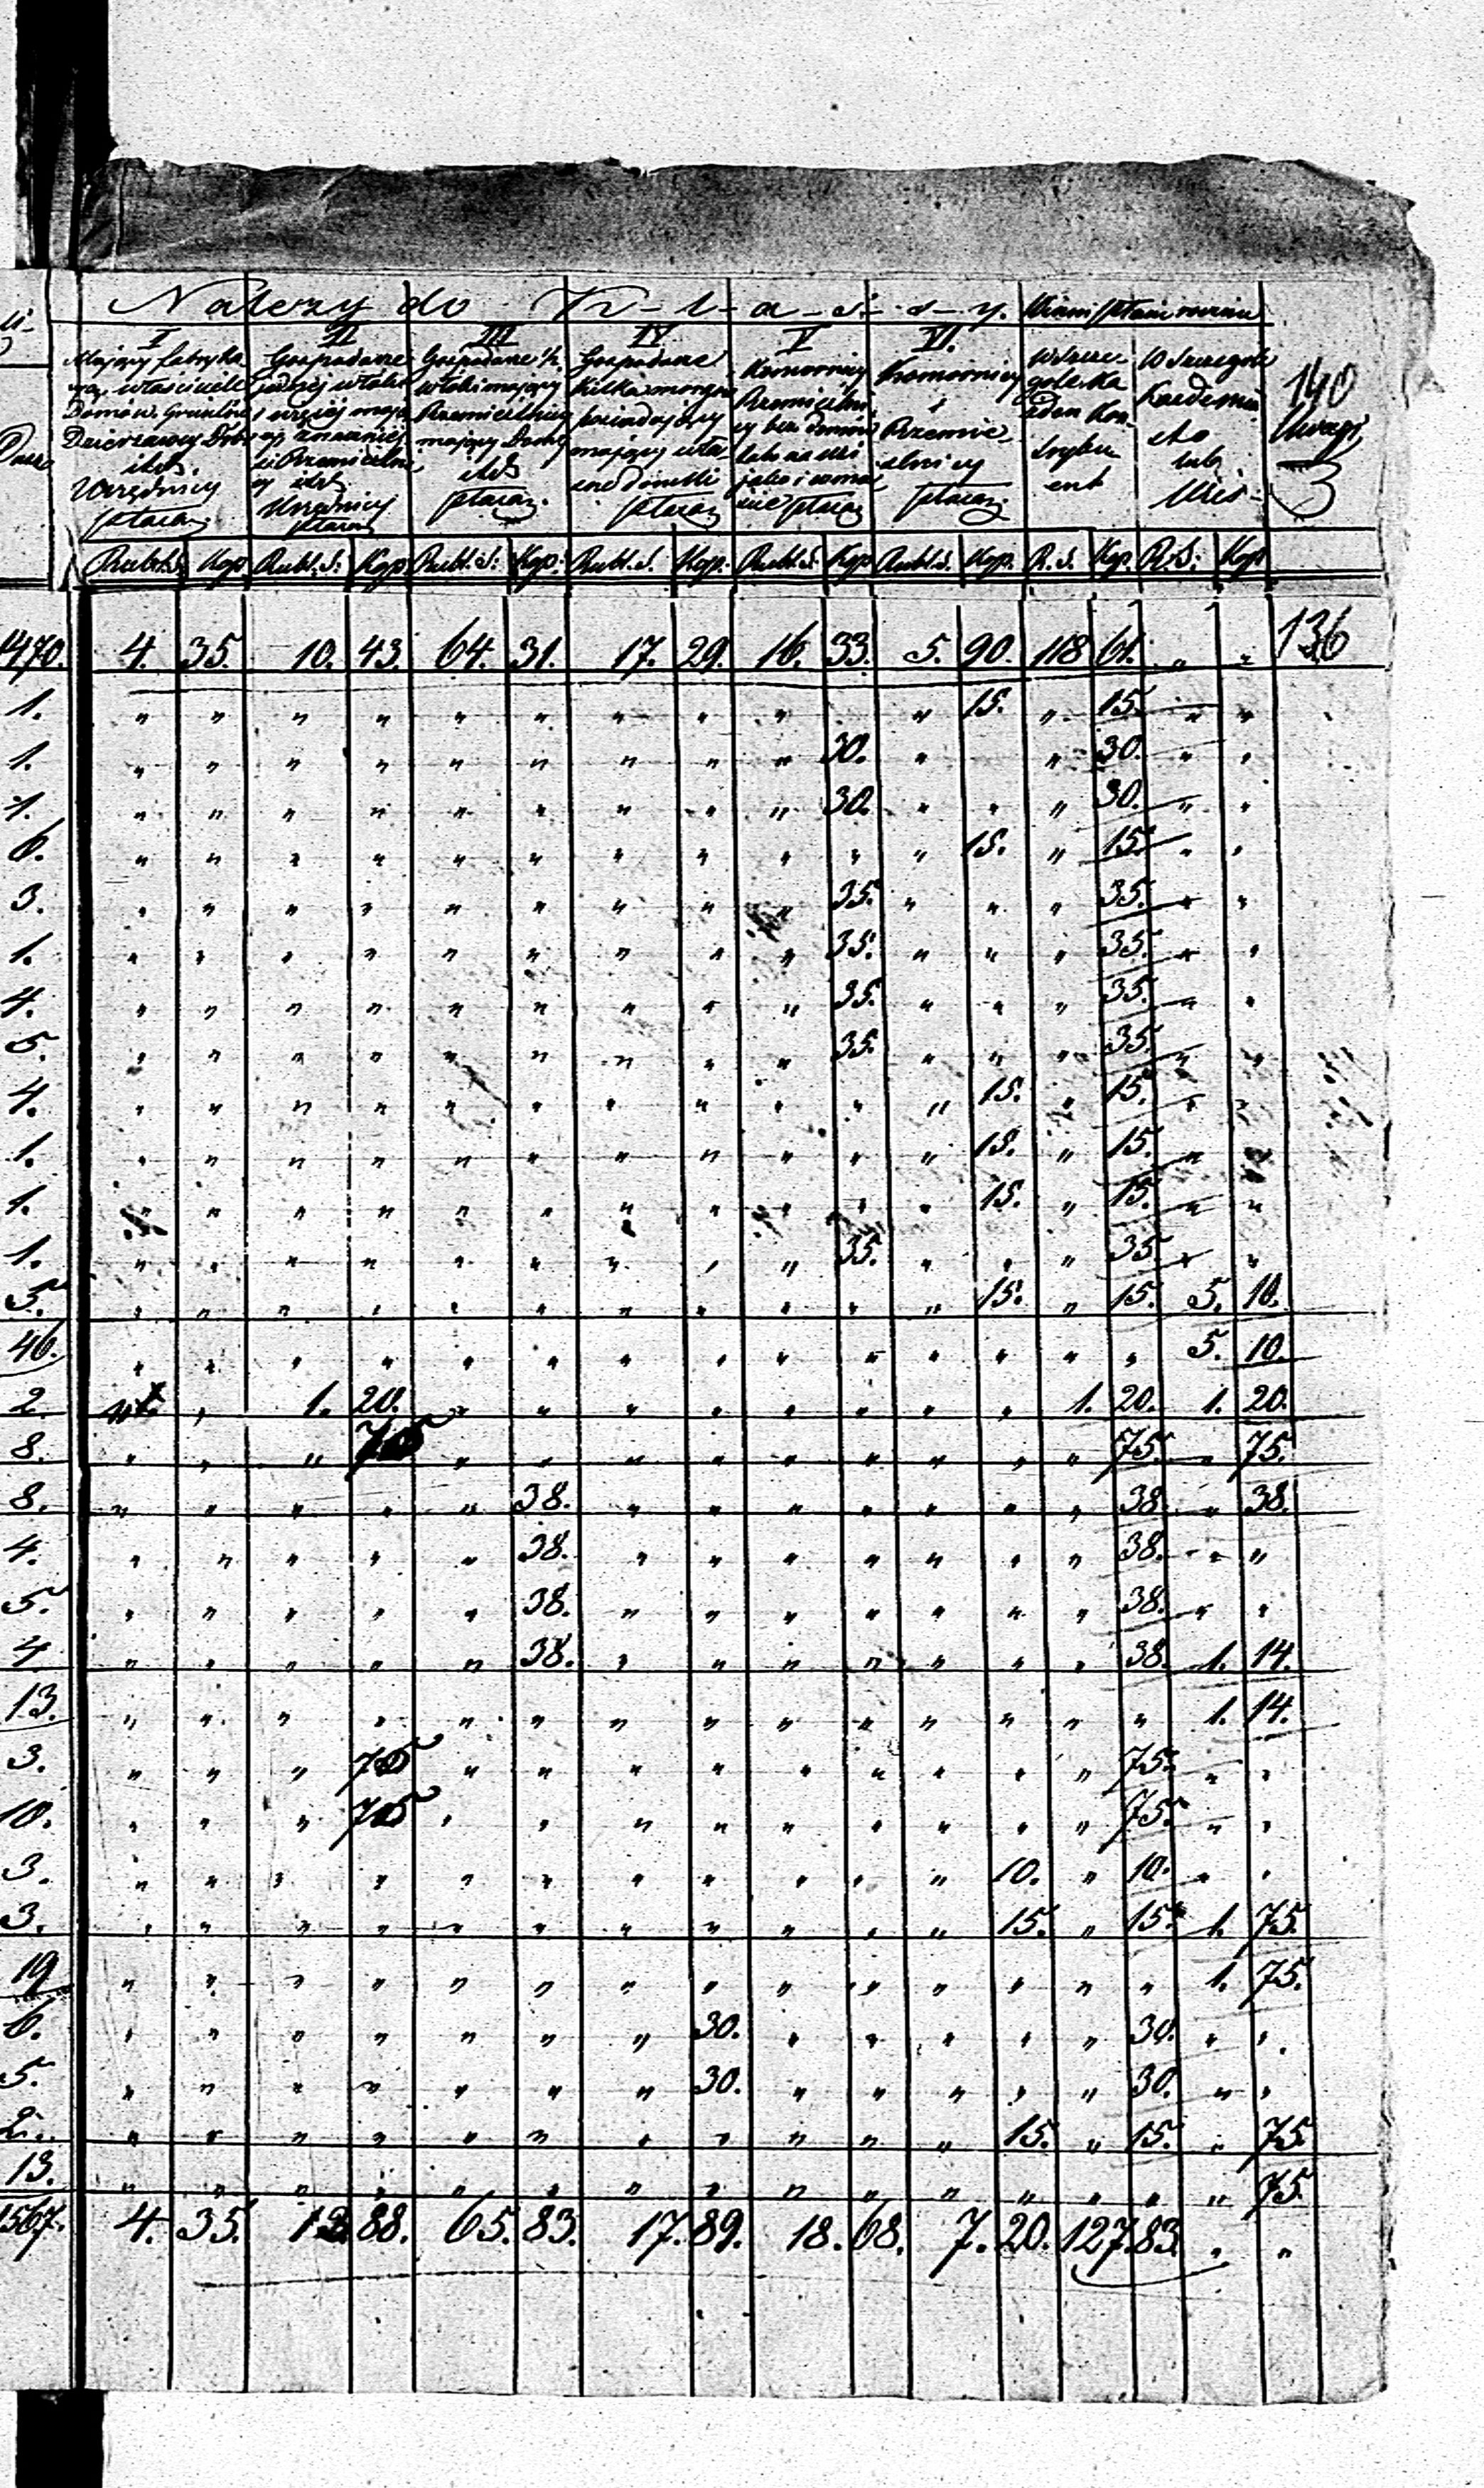 Należy do K-l-a-s-s-y. Winni płacić rocznie
I II III IV V VI.
Mający fabryka właściciele Domów. Dzierżawcy Dóbr itd. Urzędnicy płacą
Gospodarze i więcej mają Urzędnicy płacą
Gospodarze ½ włóki mający Rzemieślnicy mający Domy itd płacą.
Gospodarze kilka morgów posiadający mający własne Domki płacą
Komornicy Rzemieślnicy bez domów jako i płacą
Komornicy i Rzemieślnicy płacą.
W szczególe Ka żden Kontrybuent
W szczególe Każde miasto lub Wieś
140
Uwagi
Rubl.S. Kop Rubl.S: Kop Rubl.S: Kop: Rubl.S. Kop. Rubl.S. Kop Rubl.S. Kop. R.S. Kop. R.S: Kop
1470. 4. 35. 10. 43. 64. 31. 17. 29. 16. 33. 5. 90. 118 61. " " 136
1. " " " " " " " " " " 15. " 15. " "
1. " " " " " " " " " 30. " " 30. " "
1. " " " " " " " " " 30. " " " 30. " "
6. " " " " " " " " " " " 15. " 15. " "
3. " " " " " " " " " 35. " " " 35. " "
1. " " " " " " " " " 35. " " " 35. " "
4. " " " " " " " " " 35. " " " 35. " "
5. " " " " " " " " " 35. " " " 35. " "
4. " " " " " " " " " " " 15. " 15. " "
1. " " " " " " " " " " " 15. " 15. " "
1. " " " " " " " " " " " 15. " 15. " "
1. " " " " " " " " " 35. " " " 35 " "
5. " " " " " " " " " " " 15. " 15. 5. 10.
46. " " " " " " " " " " " " " " 5. 10.
2. " " 1. 20. " " " " " " " " 1. 20. 1. 20.
8. " " " 75 " " " " " " " " " 75. " 75.
8. " " " " " 38. " " " " " " " 38. " 38.
4. " " " " " 38. " " " " " " " 38. " "
5. " " " " " 38. " " " " " " " 38. " "
4 " " " " " 38. " " " " " " " 38. 1. 14.
13. " " " " " " " " " " " " " " 1. 14.
3. " " " 75 " " " " " " " " " 75. " "
10. " " " 75 " " " " " " " " " 75. " "
3. " " " " " " " " " " " 10. " 10. " "
3. " " " " " " " " " " " 15. " 15. 1. 75.
19 " " " " " " " " " " " " " " 1. 75.
6. " " " " " " " 30. " " " " " 30. " "
5. " " " " " " " 30. " " " " " 30. " "
2. " " " " " " " " " " " 15. " 15. " 75
13. " " " " " " " " " " " " " " " 75.
1567. 4. 35. 13. 88. 65. 83. 17. 89. 18. 68. 7. 20. 127. 83. " "